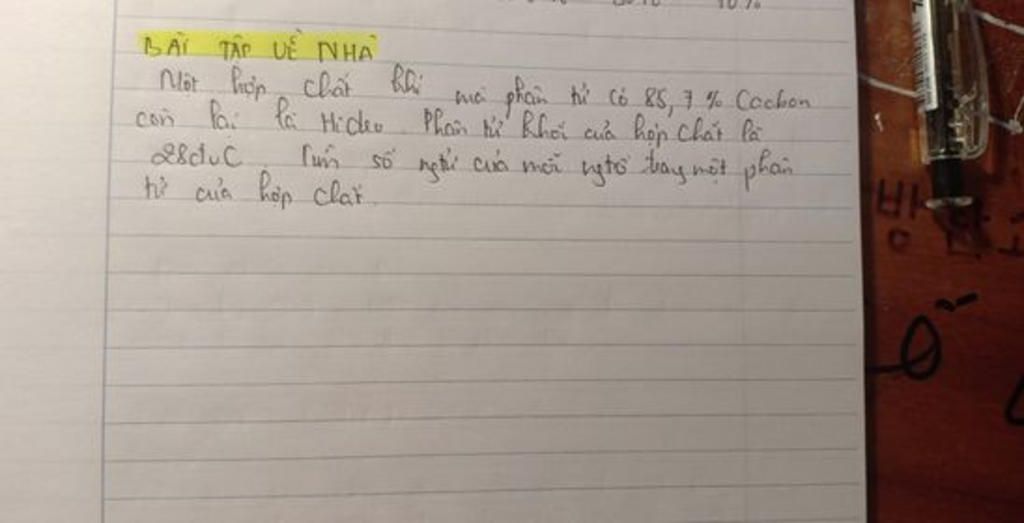 10%
BÀI TẬP VỀ NHÀ
Một hợp chất khí mà phân tử có 85,7% Cacbon
còn lại là Hiđro. Phân tử khối của hợp chất là
28đvC. Tìm số ngtử của mỗi ngtố trong một phân
tử của hợp chất.